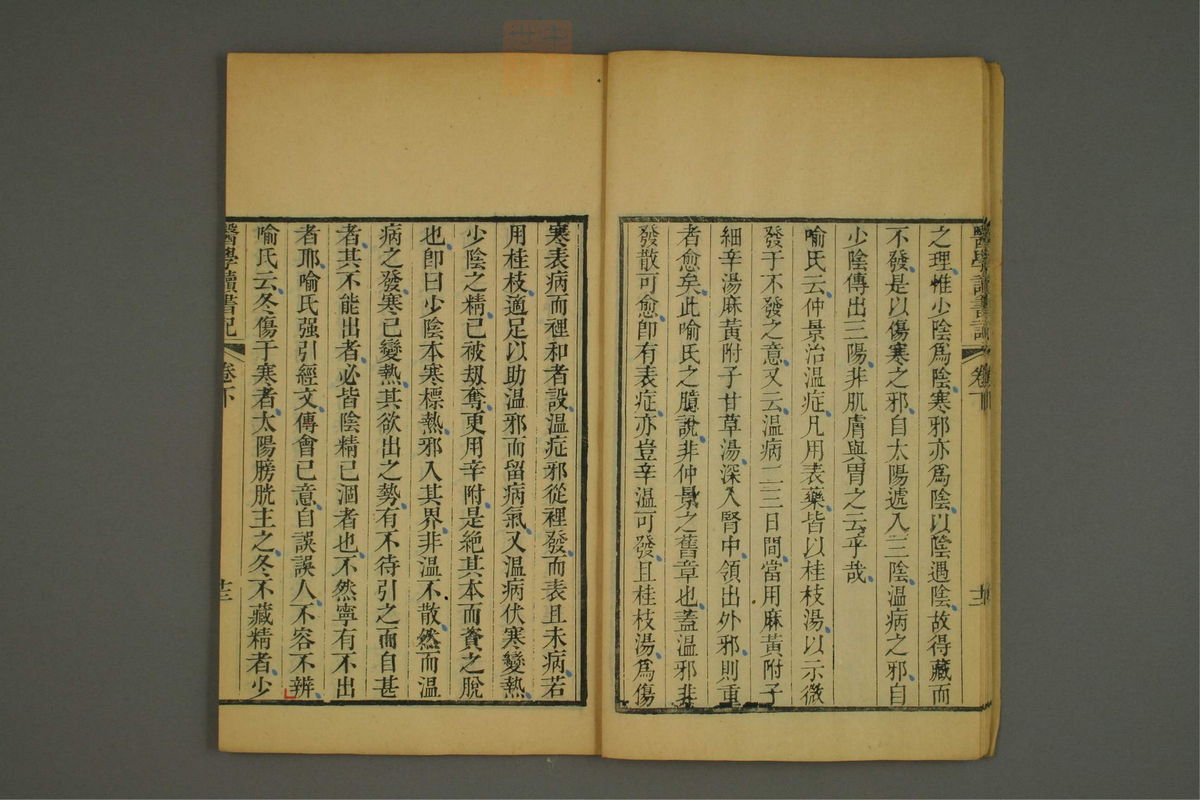 醫學讀書記 卷下 十二
之理惟少陰爲陰寒邪亦爲陰以陰遇陰故得藏而
不發是以傷寒之邪自太陽遞入三陰溫病之邪自
少陰傳出三陽非肌膚與胃之云乎哉
喻氏云仲景治溫症凡用表藥皆以桂枝湯以示微
發于不發之意又云溫病二三日間當用麻黃附子
細辛湯麻黃附子甘草湯深入腎中領出外邪則重
者愈矣此喻氏之臆說非仲景之舊章也蓋溫邪非
發散可愈卽有表症亦豈辛溫可發且桂枝湯爲傷
寒表病而裡和者設溫症邪從裡發而表且未病若
用桂枝適足以助溫邪而留病氣又溫病伏寒變熱
少陰之精已被刼奪更用辛附是絕其本而資之脫
也卽曰少陰本寒標熱邪入其界非溫不散然而溫
病之發寒已變熱其欲出之勢有不待引之而自甚
者其不能出者必皆陰精已涸者也不然寧有不出
者耶喻氏强引經文傳會已意自誤誤人不容不辨
喻氏云冬傷于寒者太陽膀胱主之冬不藏精者少
醫學讀書記 卷下 十三